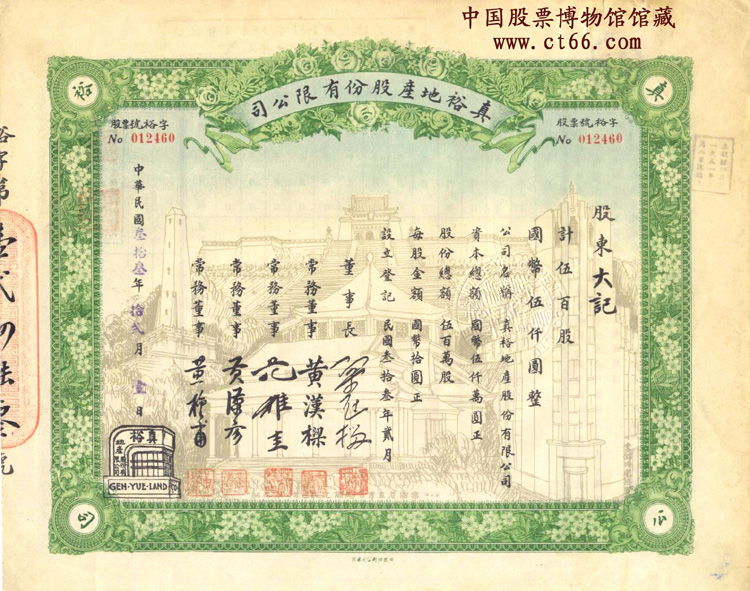 中国股票博物馆馆藏
www.ct66.com
真裕地產股份有限公司
真
裕
公
司
股票號裕字
No 012460
股票號裕字
No 012460
股東大記
計伍百股
國幣伍仟圓整
公司名稱 真裕地產股份有限公司
資本總額 國幣伍仟萬圓正
股份總額 伍百萬股
每股金額 國幣拾圓正
設立登記 民國叁拾叁年貳月
董事長
常務董事 黃漢樑
常務董事
常務董事
常務董事
中華民國叁拾叁年拾貳月壹日
真裕
地產股份有限公司
GEN-YUE-LAND CO.